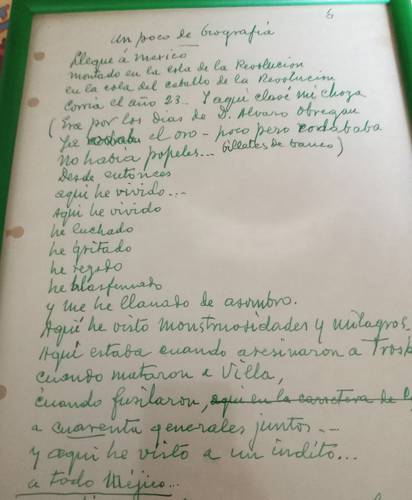 6
un poco de Geografía
Llegué a Mexico
montado en la cola de la Revolucion
en la cola del caballo de la Revolucion
Corria el año 23.. Y aqui clavé mi choza
(Era por los dias de D. Alvaro obregan
Ya rodaba el oro - poco pero rodababa
No habia papeles... billetes de banco)
Desde entonces
aqui he vivido...
Aqui he vivido
he luchado
he gritado
he rezado
he blasfemado
y me he llenado de asombro.
Aquí he visto monstruosidades y milagros.
Aqui estaba cuando asesinaron a Trosk
cuando mataron a Villa,
cuando fusilaron, aqui en la carretera de
a cuarenta generales juntos...
y aqui he visto a un indito...
a todo Méjico...